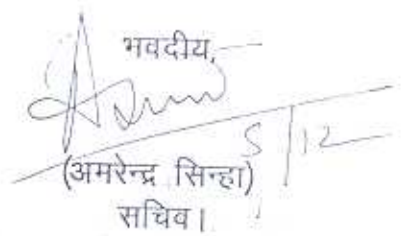 भवदीय,
5/12
(अमरेन्द्र सिन्हा)
सचिव।